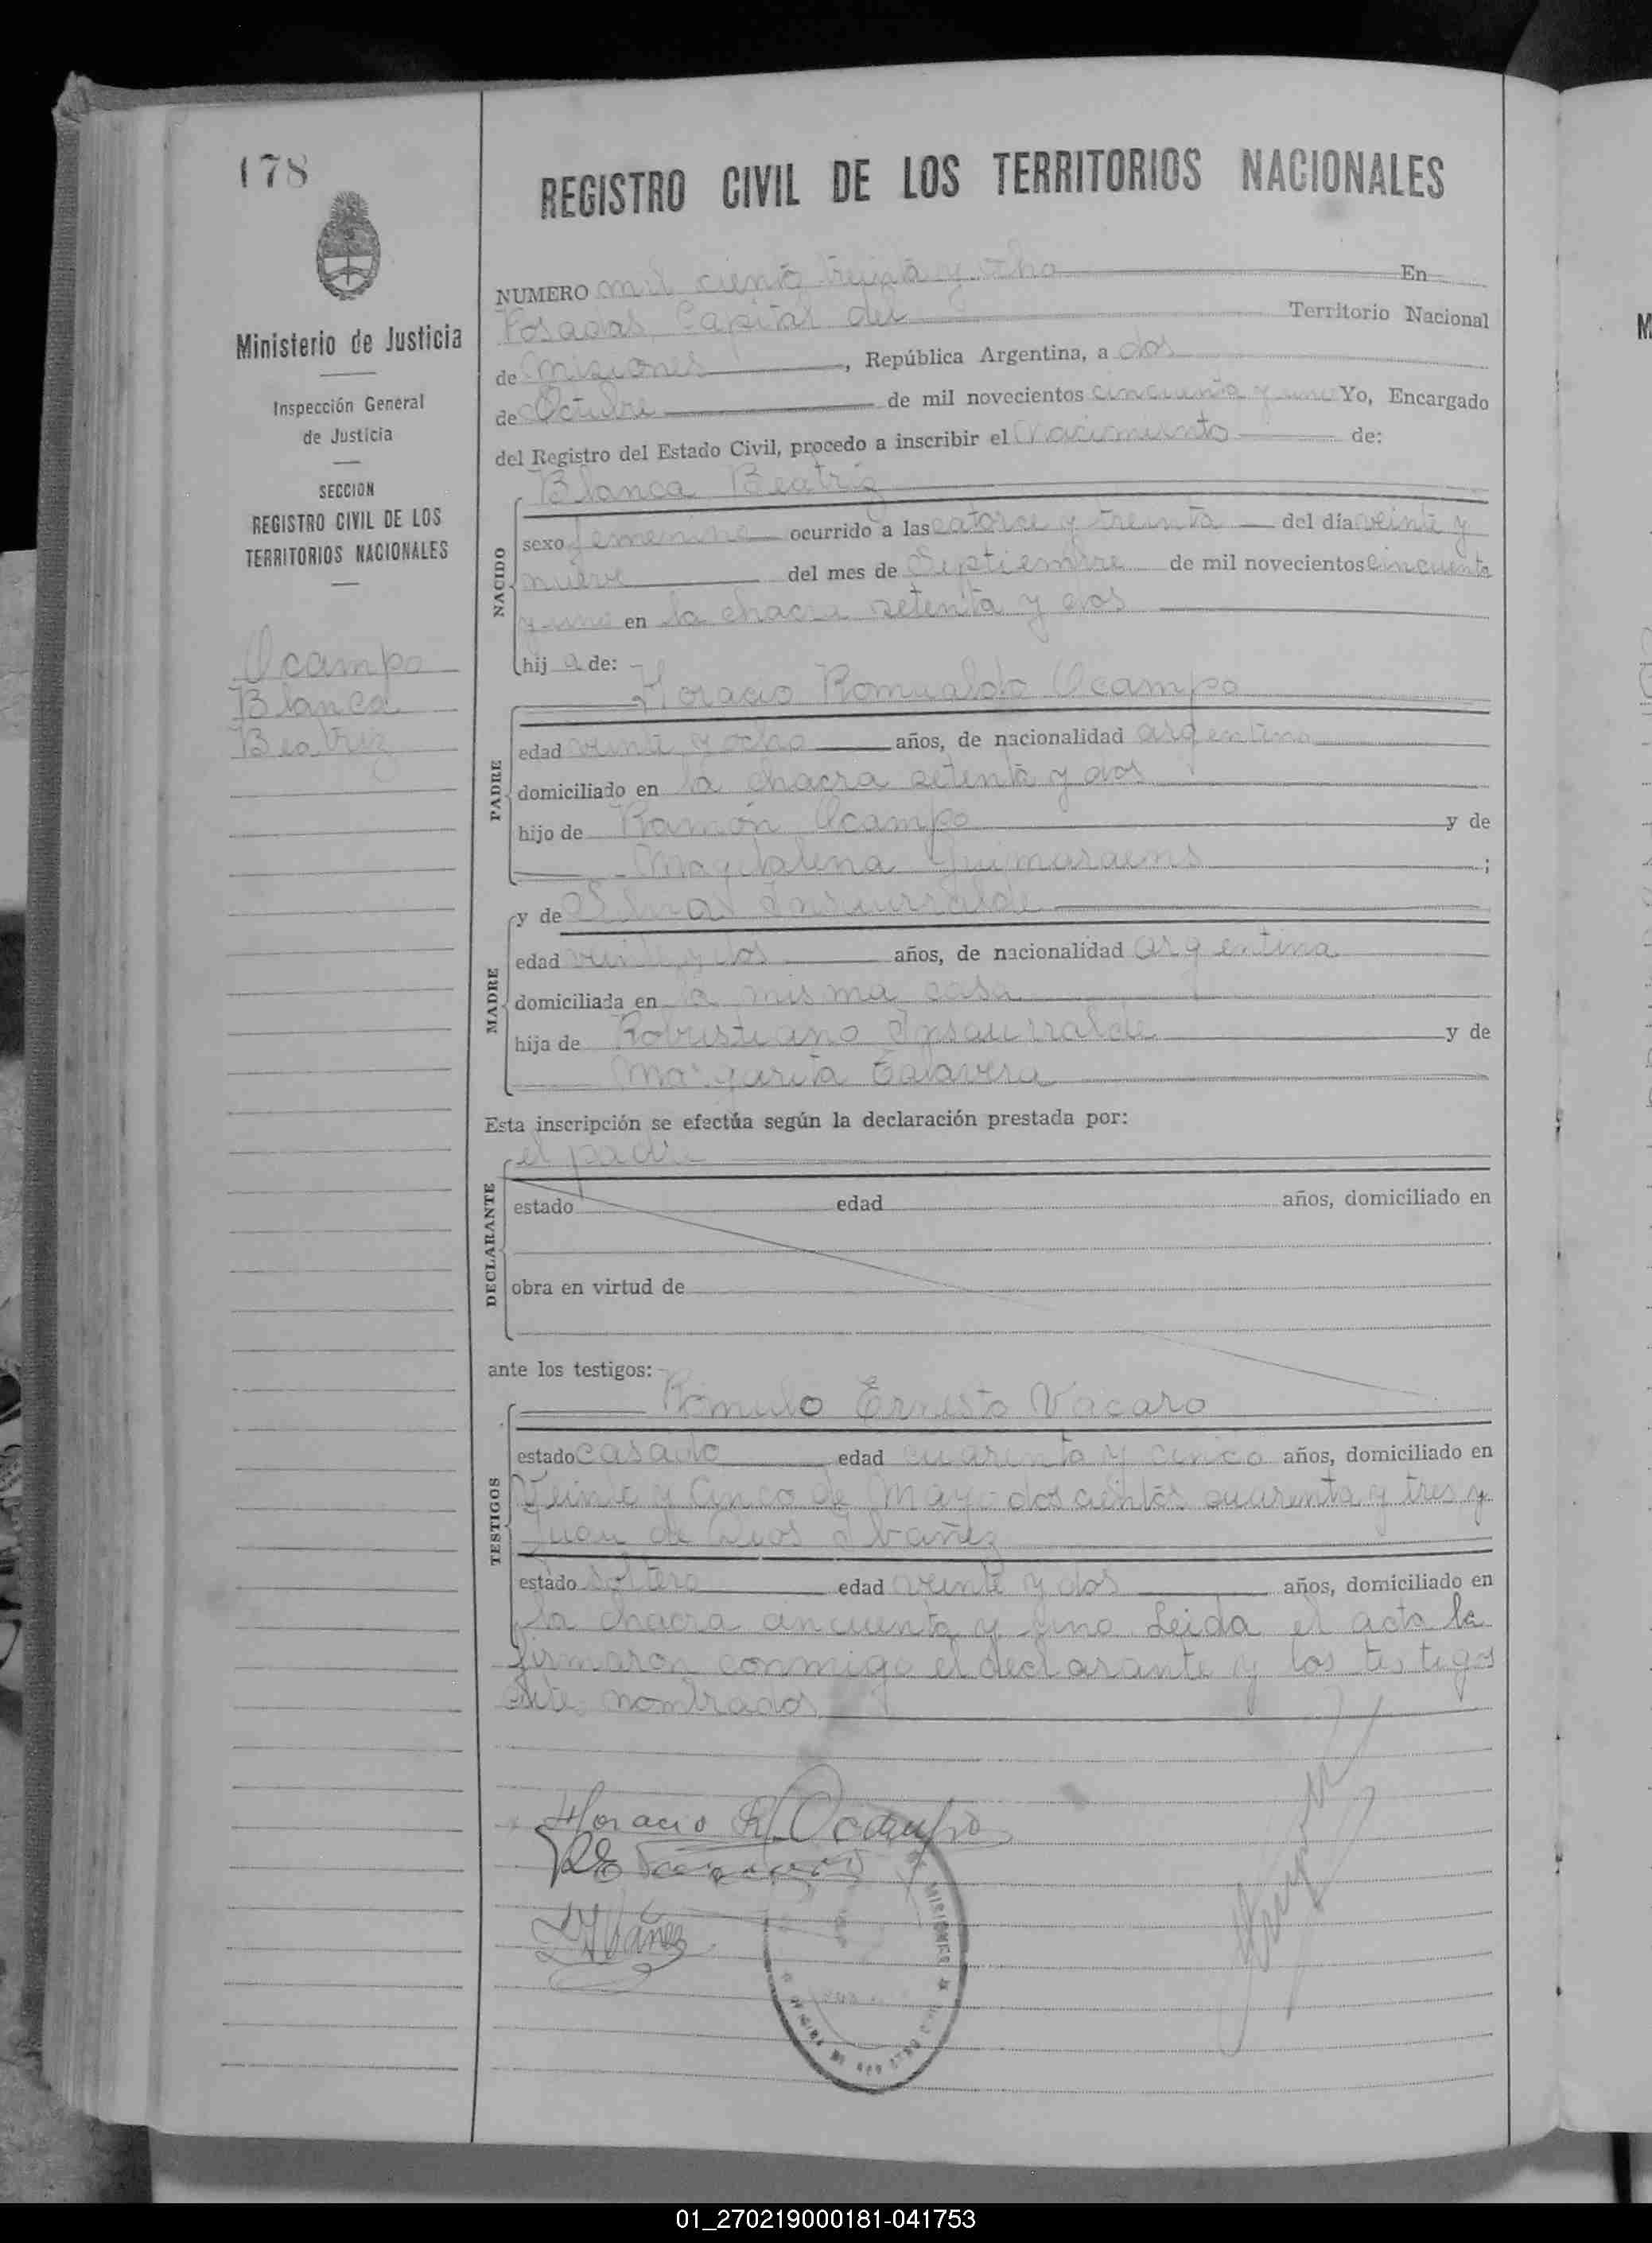 178
REGISTRO CIVIL DE LOS TERRITORIOS NACIONALES
Ministerio de Justicia
Inspección General
de Justicia
SECCION
REGISTRO CIVIL DE LOS
TERRITORIOS NACIONALES
Ocampo
Blanca
Beatriz
NUMERO mil ciento treinta y ocho En
Posadas, Capital del Territorio Nacional
de Misiones, República Argentina, a dos
de Octubre de mil novecientos cincuenta y uno Yo, Encargado
del Registro del Estado Civil, procedo a inscribir el Nacimiento de:
Blanca Beatriz
NACIDO
sexo femenino ocurrido a las catorce y treinta del día veinte y
nueve del mes de Septiembre de mil novecientos cincuenta
y uno en la chacra setenta y dos
hija de:
Horacio Romualdo Ocampo
PADRE
edad veinte y ocho años, de nacionalidad argentina
domiciliado en la chacra setenta y dos
hijo de Ramón Ocampo y de
Magdalena Guimaraens;
MADRE
y de Insaurralde
edad veinte y dos años, de nacionalidad argentina
domiciliada en la misma casa
hija de Robustiano Insaurralde y de
Margarita Talavera
Esta inscripción se efectúa según la declaración prestada por:
el padre
DECLARANTE
estado edad años, domiciliado en
obra en virtud de
ante los testigos:
Rómulo Ernesto Vacaro
TESTIGOS
estado casado edad cuarenta y cinco años, domiciliado en
Veinte y Cinco de Mayo doscientos cuarenta y tres y
Juan de Dios Ibañez
estado soltero edad veinte y dos años, domiciliado en
la chacra cincuenta y uno. Leida el acta la
firmaron conmigo el declarante y los testigos
ante nombrados
Horacio R. Ocampo
Ibañez
MISIONES
01_270219000181-041753